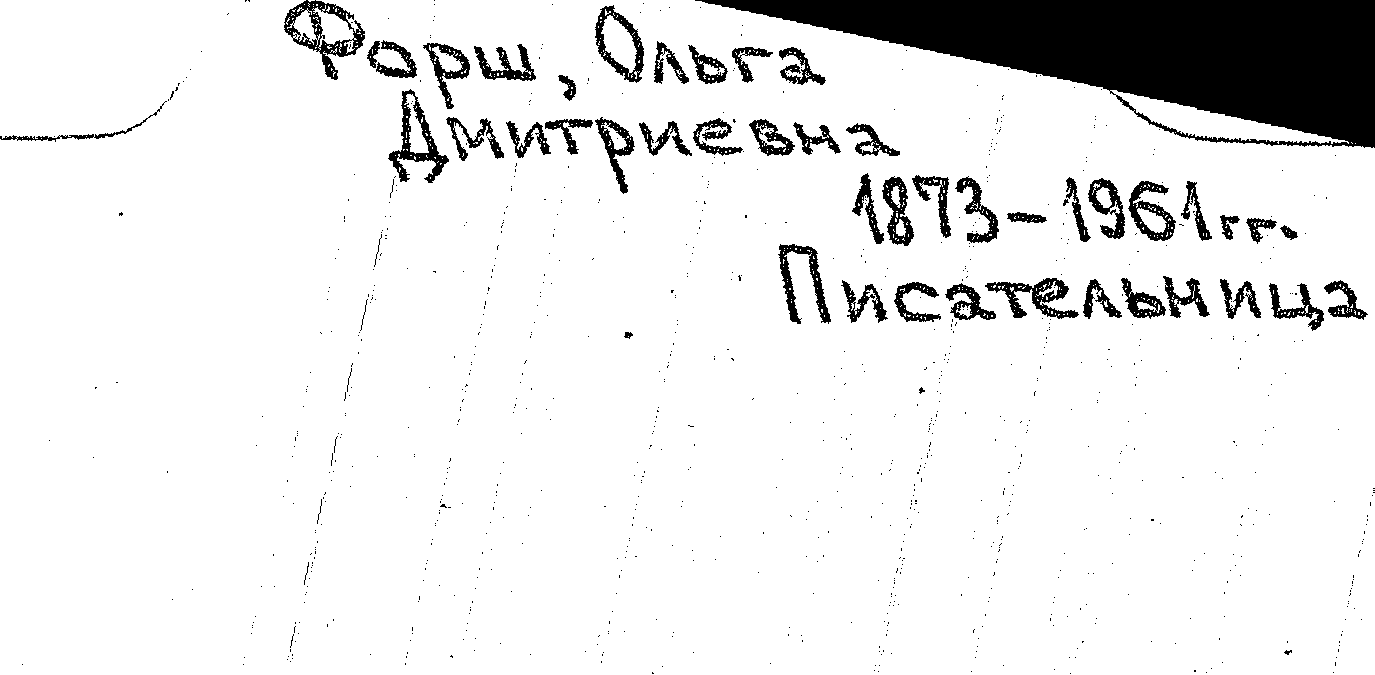 Форш, Ольга
Дмитриевна
1873-1961гг.
Писательница